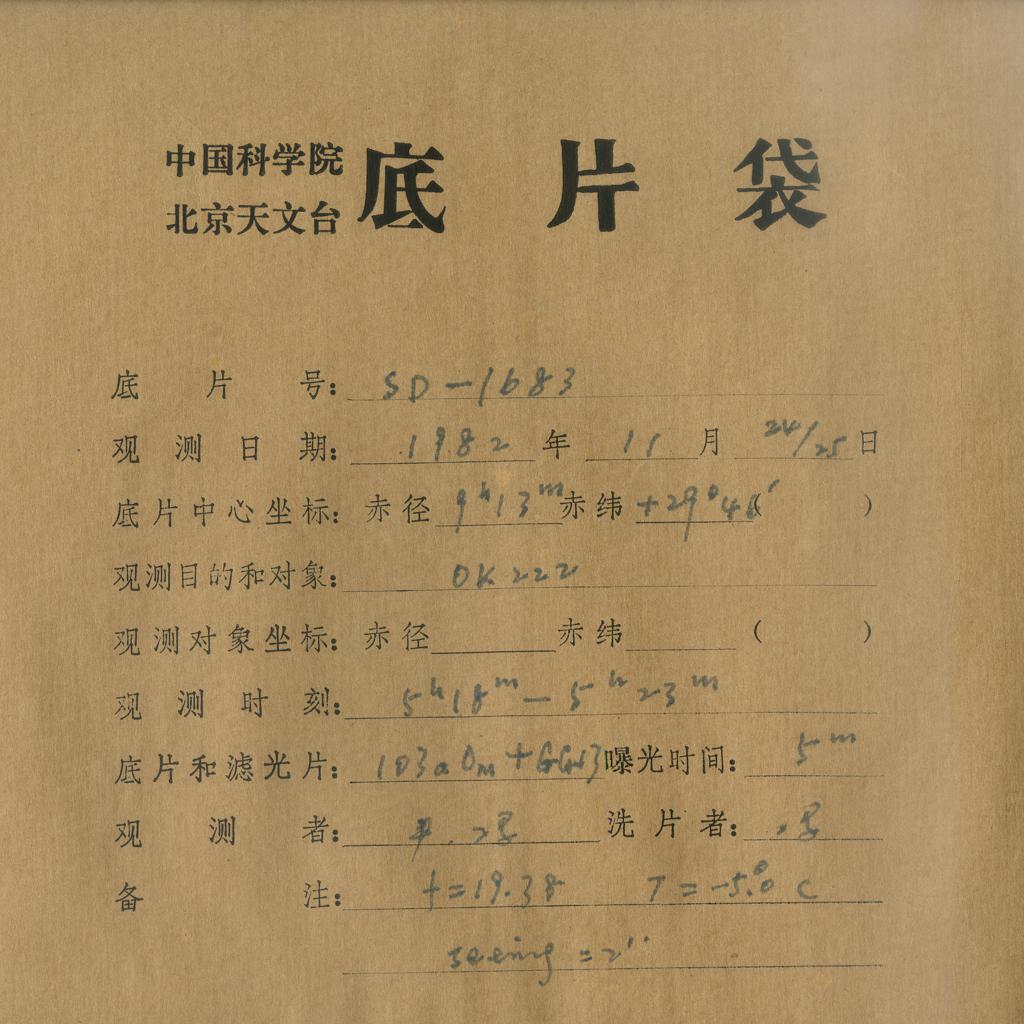 中国科学院
北京天文台
底片袋
底片号： SD-1683
观测日期： 1982 年 11 月 24/25 日
底片中心坐标： 赤径 9h13m 赤纬 +29°46′ ( )
观测目的和对象： OK222
观测对象坐标： 赤径 赤纬 ( )
观测时刻： 5h18m - 5h23m
底片和滤光片： 103aOm + GG13 曝光时间： 5m
观测者： 洗片者：
备注： f=19.38 T=-5.°0 C
seeing = 2″